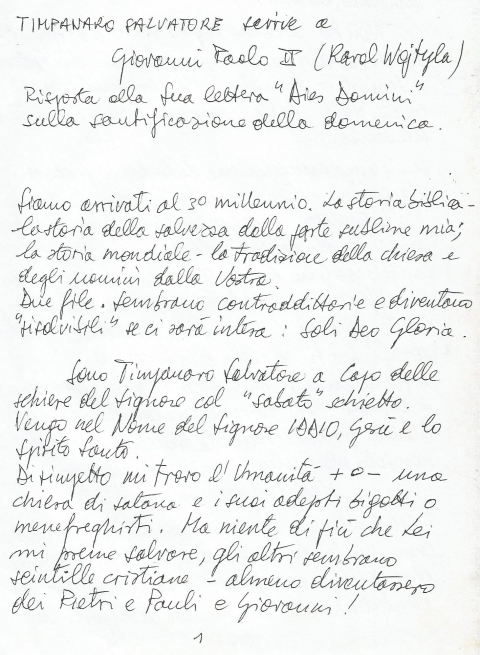 TIMPANARO SALVATORE scrive a
Giovanni Paolo II (Karol Wojtyla)
Risposta alla Sua lettera "Dies Domini"
sulla santificazione della domenica.
Siamo arrivati al 3o millennio. La storia biblica -
la storia della salvezza dalla parte sublime mia;
la storia mondiale - la tradizione della chiesa e
degli uomini dalla Vostra.
Due file. Sembrano contraddittorie e diventano
"risolvibili" se ci sarà intesa: Soli Deo Gloria.
Sono Timpanaro Salvatore a Capo delle
schiere del Signore col "sabato" schietto.
Vengo nel Nome del Signore IDDIO, Gesù e lo
Spirito Santo.
Dirimpetto mi trovo l'Umanità + o - una
chiesa di satana e i suoi adepti bigotti o
menefreghisti. Ma niente di più che Lei
mi preme salvare, gli altri sembrano
scintille cristiane - almeno diventassero
dei Pietri e Paoli e Giovanni!
1